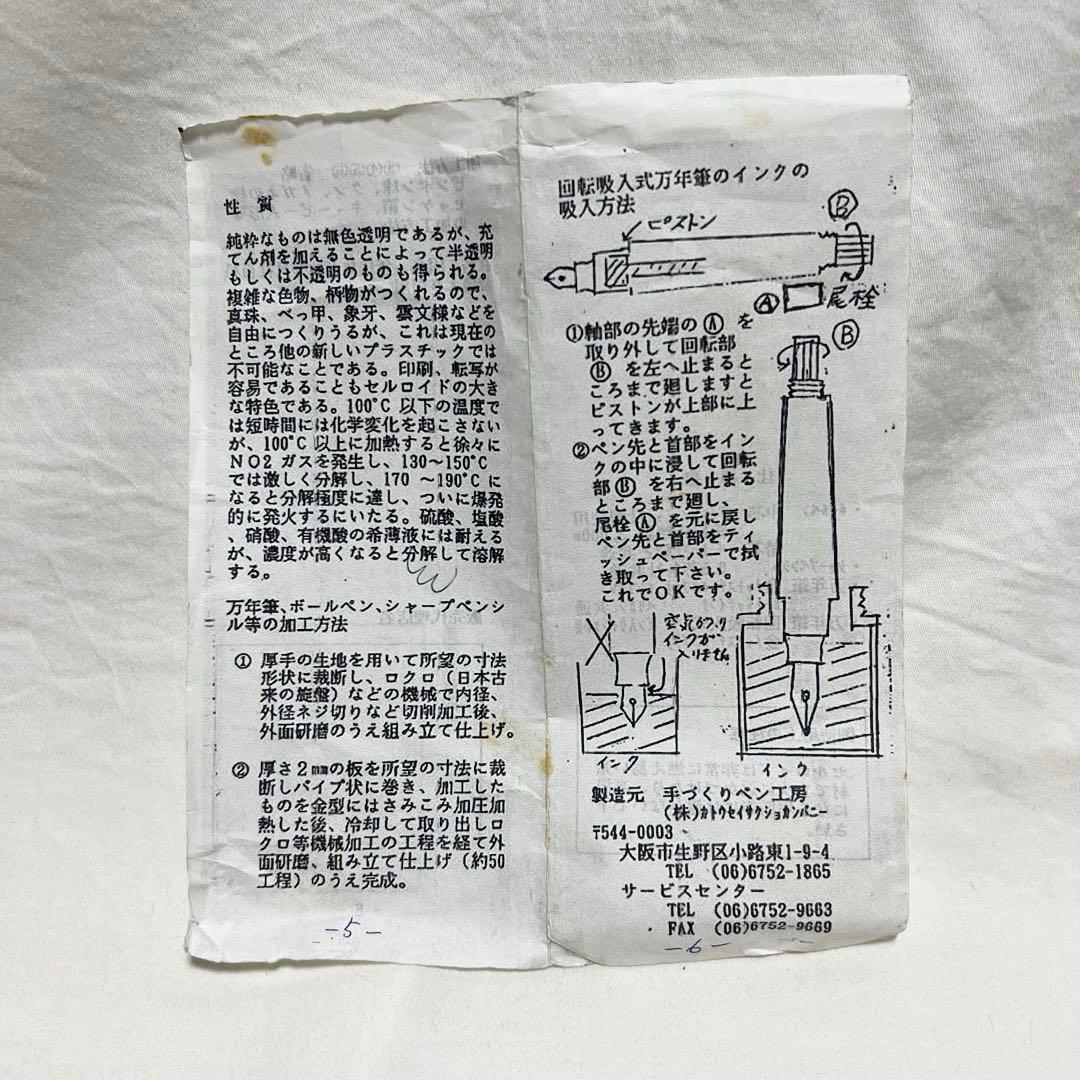 性 質
純粋なものは無色透明であるが、充
てん剤を加えることによって半透明
もしくは不透明のものも得られる。
複雑な色物、柄物がつくれるので、
真珠、べっ甲、象牙、雲文様などを
自由につくりうるが、これは現在の
ところ他の新しいプラスチックでは
不可能なことである。印刷、転写が
容易であることもセルロイドの大き
な特色である。100℃ 以下の温度で
は短時間には化学変化を起こさない
が、100℃ 以上に加熱すると徐々に
NO2 ガスを発生し、130～150℃
では激しく分解し、170 ～190℃ に
なると分解極度に達し、ついに爆発
的に発火するにいたる。硫酸、塩酸
、硝酸、有機酸の希薄液には耐える
が、濃度が高くなると分解して溶解
する。
万年筆、ボールペン、シャープペンシ
ル等の加工方法
① 厚手の生地を用いて所望の寸法
形状に裁断し、ロクロ（日本古
来の旋盤）などの機械で内径、
外径ネジ切りなど切削加工後、
外面研磨のうえ組み立て仕上げ。
② 厚さ2㎜の板を所望の寸法に裁
断しパイプ状に巻き、加工した
ものを金型にはさみこみ加圧加
熱した後、冷却して取り出しロ
クロ等機械加工の工程を経て外
面研磨、組み立て仕上げ（約50
工程）のうえ完成。
-5-
回転吸入式万年筆のインクの
吸入方法
ピストン
Ⓑ
Ⓐ 尾栓
①軸部の先端の Ⓐ を
取り外して回転部
Ⓑ を左へ止まると
ころまで廻しますと
ピストンが上部に上
ってきます。
②ペン先と首部をイン
クの中に浸して回転
部 Ⓑ を右へ止まる
ところまで廻し、
尾栓 Ⓐ を元に戻し
ペン先と首部をティ
ッシュペーパーで拭
き取って下さい。
これでOKです。
Ⓑ
空気が入り
インクが
入りません
インク
インク
製造元 手づくりペン工房
(株)カトウセイサクショカンパニー
〒544-0003
大阪市生野区小路東1-9-4
TEL (06)6752-1865
サービスセンター
TEL (06)6752-9663
FAX (06)6752-9669
-6-